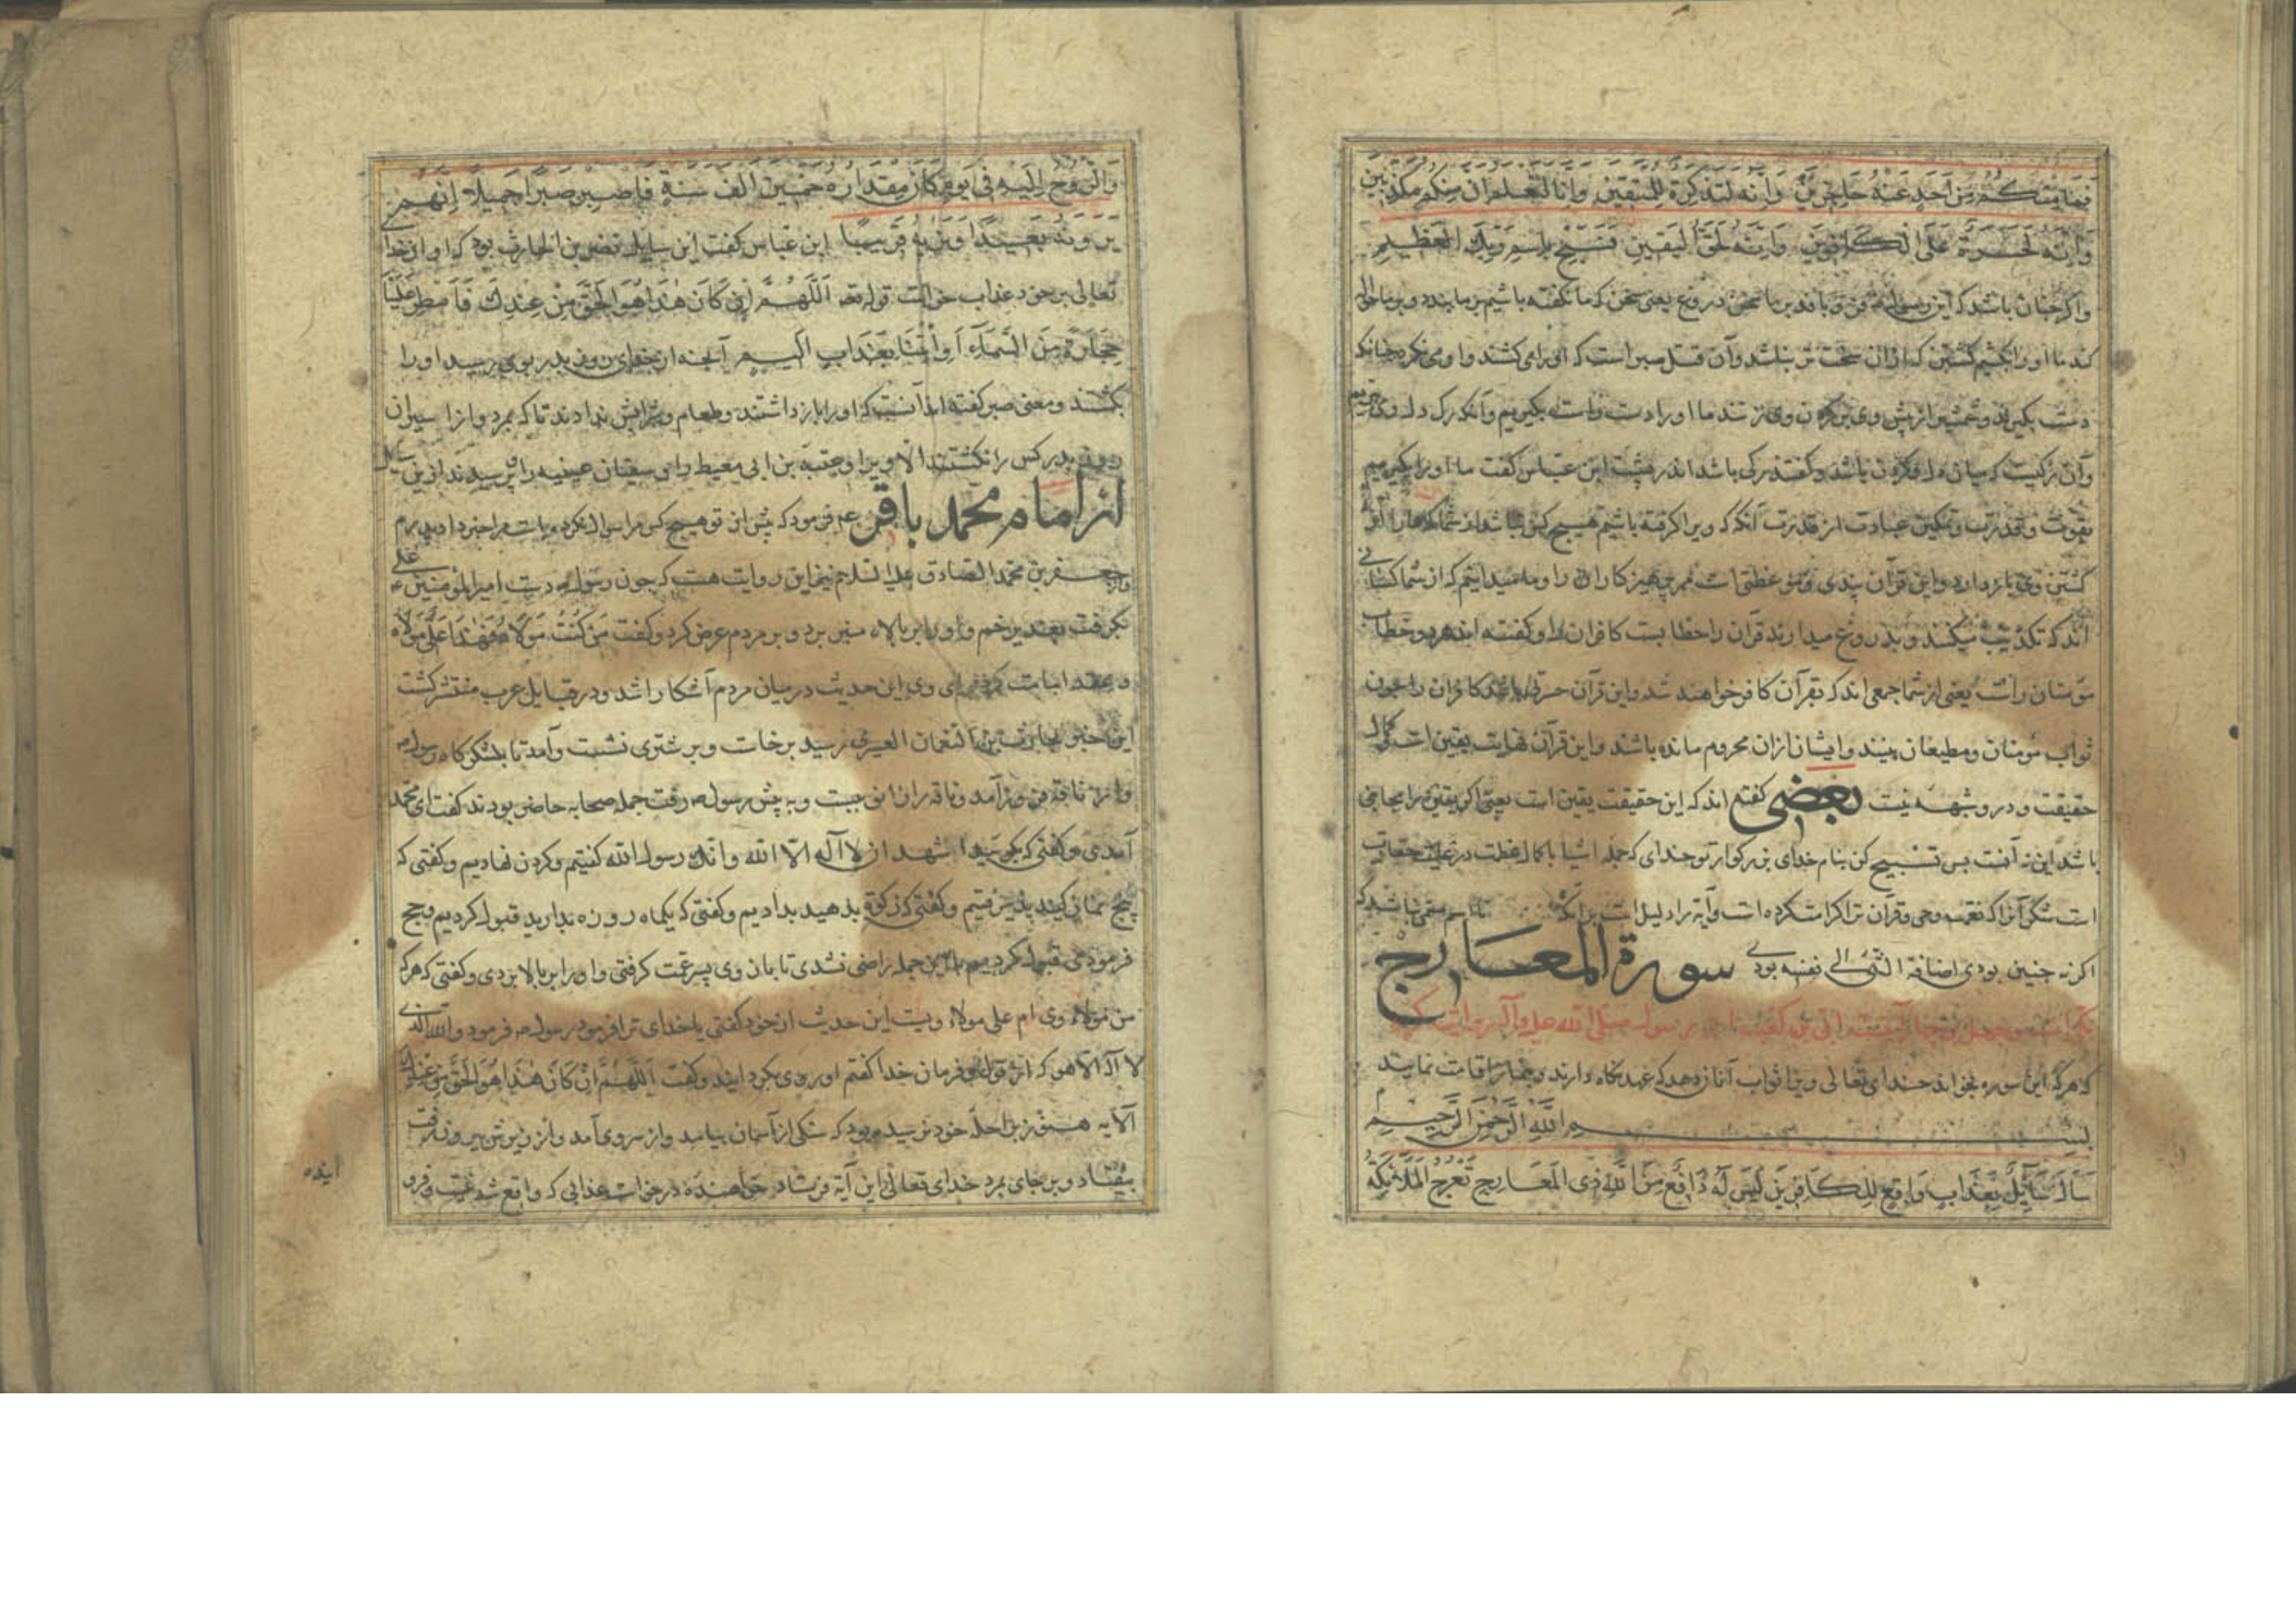 فَمَا مِنْكُمْ مِنْ أَحَدٍ عَنْهُ حَاجِزِينَ وَإِنَّهُ لَتَذْكِرَةٌ لِلْمُتَّقِينَ وَإِنَّا لَنَعْلَمُ أَنَّ مِنْكُمْ مُكَذِّبِينَ
وَإِنَّهُ لَحَسْرَةٌ عَلَى الْكَافِرِينَ وَإِنَّهُ لَحَقُّ الْيَقِينِ فَسَبِّحْ بِاسْمِ رَبِّكَ الْعَظِيمِ
واکر چنان باشد که این رسول فرو بافد بر ما سخن دروغ یعنی سخن که ما نکفته باشیم بر ما بندد و بر ما حواله
کند ما او را بکشیم کشتن که ازان سخت تر نباشد وآن قتل صبر است که او را می کشند و او می نکرد چنانکه
دست بکیرند و شمشیر از پیش وی بر کردن وی زنند ما او را دست راست بکیریم وآنکه رک دل وی ببریم
وآن رکیست که میان دل و کردن باشد وکفتند رکی باشد اندر پشت ابن عباس کفت ما او را بکیریم
بقوت و قدرت و تمکین عبادت از قدرت آنکه که ویرا کرفته باشیم هیچ کس نباشد از شما که ما را از
کشتن وی باز دارد و این قرآن پندی و موعظتی است مر پرهیزکاران را و ما میدانیم که از شما کسانی
اند که تکذیب میکنند و بدروغ میدارند قرآن را خطابست کافران را و کفته اند هر دو خطاب
مومنان راست یعنی از شما جمعی اند که بقرآن کافر خواهند شد و این قرآن حسرتی باشد کافران را چون
ثواب مومنان و مطیعان بینند و ایشان ازان محروم مانده باشند و این قرآن نهایت یقین است کمال
حقیقت و درو شبهه نیست بعضی کفته اند که این حقیقت یقین است یعنی اکر یقین را مجاجی
باشد این نه آنست پس تسبیح کن بنام خدای بزرکوار تو خدای که جمله اشیا با کمال عظمت در حقارت
است شکر آنرا که نعمت وحی و قرآن ترا کرامت کرده است وآیه را دلیل است برانکه اسم مسمی باشد که
اکر نه چنین بودی اضافة الشئ الی نفسه بودی سورة المعارج
مکی است و چهل و چهار آیتست ابی بن کعب از رسول صلی الله علیه وآله روایت کرد
که هرکه این سوره بخواند خدای تعالی ویرا ثواب آنان دهد که عهد نکاه دارند و نماز اقامت نمایند
بِسْمِ اللّٰهِ الرَّحْمٰنِ الرَّحِيمِ
سَأَلَ سَائِلٌ بِعَذَابٍ وَاقِعٍ لِلْكَافِرِينَ لَيْسَ لَهُ دَافِعٌ مِنَ اللّٰهِ ذِى الْمَعَارِجِ تَعْرُجُ الْمَلٰئِكَةُ
وَالرُّوحُ إِلَيْهِ فِى يَوْمٍ كَانَ مِقْدَارُهُ خَمْسِينَ أَلْفَ سَنَةٍ فَاصْبِرْ صَبْرًا جَمِيلًا إِنَّهُمْ
يَرَوْنَهُ بَعِيدًا وَنَرَاهُ قَرِيبًا ابن عباس کفت این سایل نضر بن الحارث بود که او از خدا
تعالی بر خود عذاب خواست قوله تعه اللّٰهُمَّ إِنْ كَانَ هٰذَا هُوَ الْحَقَّ مِنْ عِنْدِكَ فَأَمْطِرْ عَلَيْنَا
حِجَارَةً مِنَ السَّمَاءِ أَوِ ائْتِنَا بِعَذَابٍ أَلِيمٍ آنچه از خدای روز بدر بوی رسید او را
بکشتند و معنی صبر کفته اند آنست که او را باز داشتند و طعام و شرابش ندادند تا که بمرد و از اسیران
روز بدر کس را نکشتند الا ویرا و عقبة بن ابی معیط را و سفیان عیینه را پرسیدند ازین سایل
از امام محمد باقر عم فرمود که پیش از تو هیچ کس مرا سوال نکرده است مرا خبر داد پدرم
واز جعفر بن محمد الصادق علیه السلام نیز این روایت هست که چون رسول دست امیرالمؤمنین علی
بکرفت بغدیر خم و او را بر بالاء منبر برد و بر مردم عرض کرد و کفت مَنْ كُنْتُ مَوْلَاهُ فَهٰذَا عَلِيٌّ مَوْلَاهُ
و عقد امامت کرد برای وی این حدیث درمیان مردم آشکارا شد و در قبایل عرب منتشر کشت
این خبر بحارث بن النعمان الفهری رسید برخاست و بر شتری نشست وآمد تا بلشکرکاه رسول
واز ناقه فرود آمد و ناقه را زانو ببست و به پیش رسول رفت جمله صحابه حاضر بودند کفت ای محمد
آمدی و کفتی که بکویید اشهد ان لا اله الا الله وانک رسول الله کفتیم و کردن نهادیم و کفتی که
پنج نماز کنید پذیرفتیم و کفتی که زکوة بدهید بدادیم و کفتی که یکماه روزه بدارید قبول کردیم و حج
فرمودی قبول کردیم با این جمله راضی نشدی تا بازوی پسر عمت کرفتی و او را بر بالا بردی و کفتی که هرکه
من مولاء وی ام علی مولاء ویست این حدیث از خود کفتی یا خدای ترا فرمود رسول فرمود والله الذی
لا اله الا هو که از قول و فرمان خدا کفتم او روی بکردانید و کفت اَللّٰهُمَّ إِنْ كَانَ هٰذَا هُوَ الْحَقَّ مِنْ عِنْدِكَ
الآیه هنوز براحله خود نرسیده بود که سنکی از آسمان بیامد و از سر وی آمد و از زیرش بیرون رفت
بیفتاد و بر جای بمرد خدای تعالی این آیة فرستاد خواهنده درخواست عذابی که واقع شد نیست و فرو
آینده